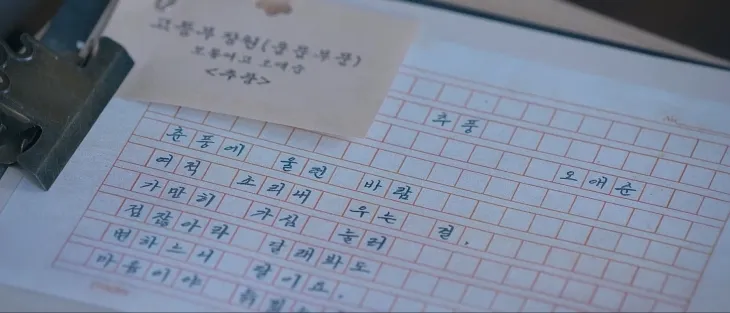 고등부 장원(운문부문)
오애순
<추풍>
추풍
오애순
춘풍에 울던 바람
여적 소리내 우는 걸,
가만히 가심 눌러
점잖아라 달래봐도
변하느니 달이요,
마음이야